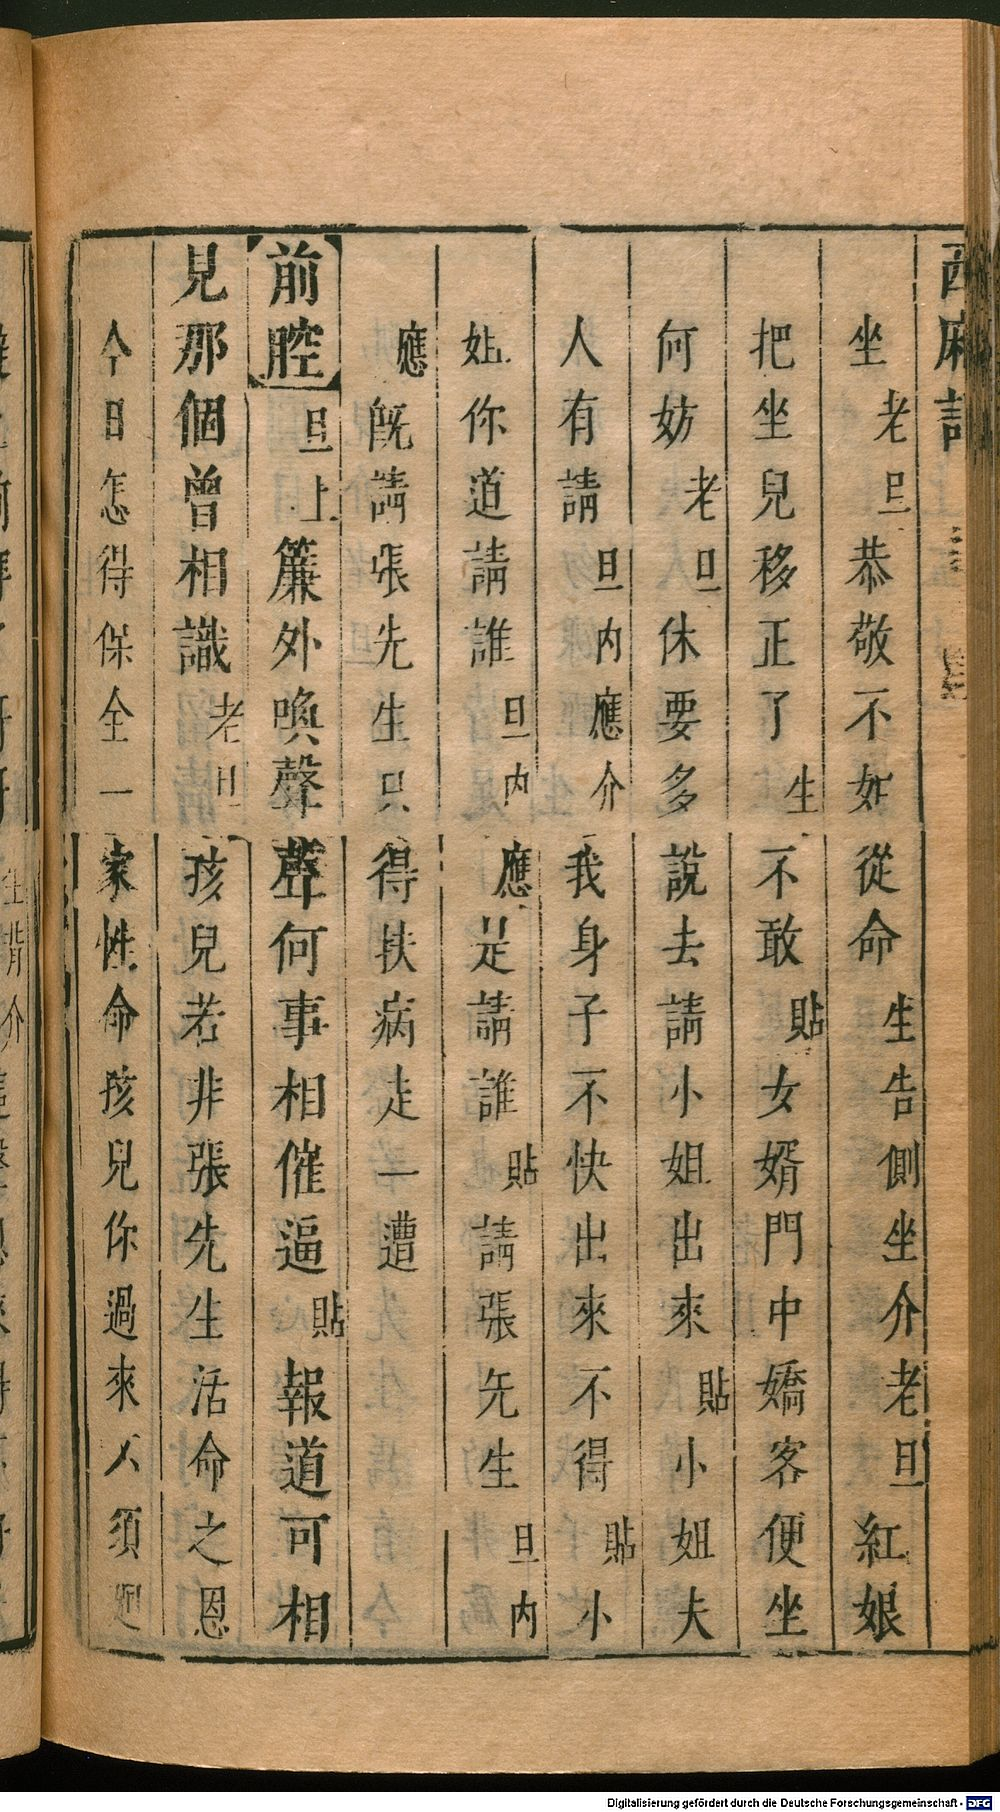 西廂記
坐老旦恭敬不如從命生告側坐介老旦紅娘
把坐兒移正了生不敢貼女婿門中嬌客便坐
何妨老旦休要多說去請小姐出來貼小姐夫
人有請旦內應介我身子不快出來不得貼小
姐你道請誰旦內應是請誰貼請張先生旦內
應既請張先生只得扶病走一遭
前腔旦上簾外喚聲聲何事相催逼貼報道可相
見那個曾相識老旦孩兒若非張先生活命之恩
今日怎得保全一家性命孩兒你過來人須
生背介
Digitalisierung gefördert durch die Deutsche Forschungsgemeinschaft - DFG